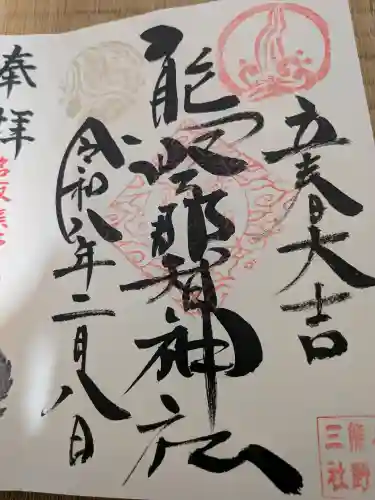 立春大吉
熊野那智神社
令和八年二月八日
奉拝
熊野
三社